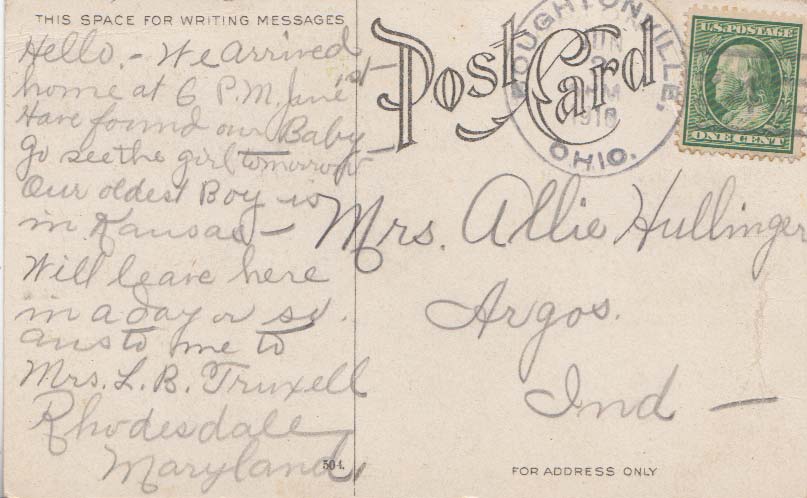 THIS SPACE FOR WRITING MESSAGES
Hello. - We arrived
home at 6 P.M. June 1st -
Have found our Baby -
Go see the girl tomorrow
Our oldest Boy is
in Kansas -
Will leave here
in a day or so.
ans to me to
Mrs. L. B. Truxell
Rhodesdale
Maryland.
504.
Post Card
BOUGHTONVILLE,
JUN
2
PM
1910
OHIO.
U.S. POSTAGE
ONE CENT
Mrs. Allie Hullinger
Argos.
Ind -
FOR ADDRESS ONLY